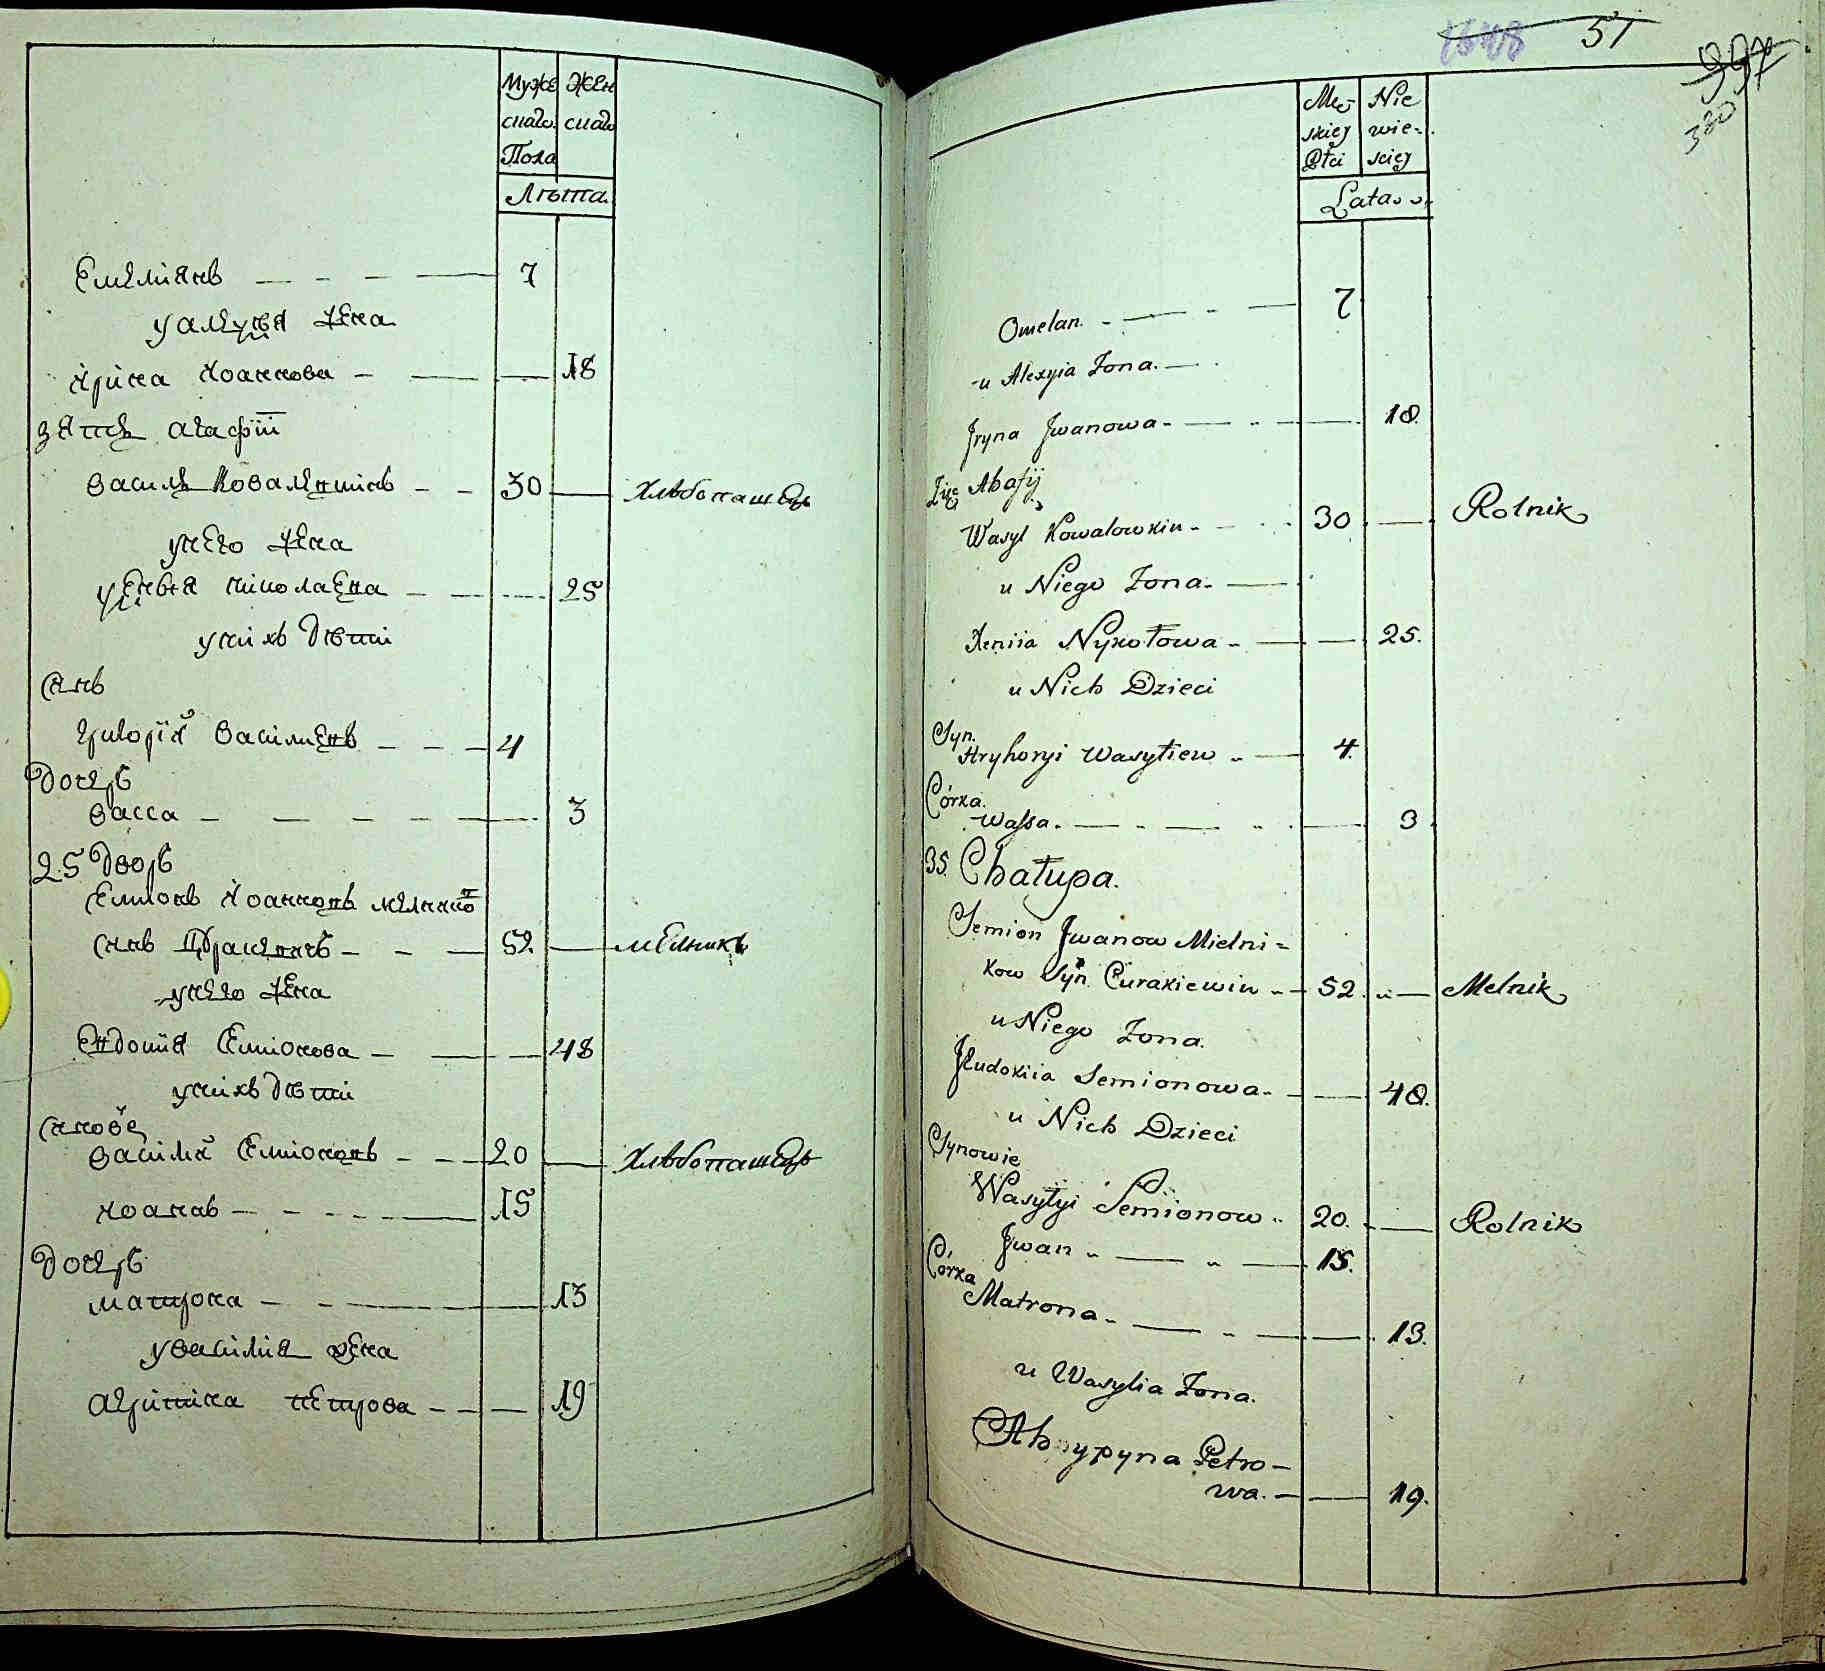 Муже Жен
скаго скаго
Пола
Лѣта.
Емелианъ — - - — 7
у алеѯѣя жена
Ирина Иоаннова — — — 18
зятъ агафiи
Василь Ковалевшинъ - - 30 — Хлѣбопашецъ
у него жена
ѯенѣя николаева - — --- 25
у нихъ дѣти
Сынъ
григорiй василиевъ - - - 4
дочерь
васса - — - - — 3
25 дворъ
Семионъ Иоанновъ мелнико
сынъ Цуракевичъ - - — 52 — мельникъ
у него жена
Евдокия Семионова — — - — 48
у нихъ дѣти
сынове
василий Семионовъ - - — 20 — Хлѣбопашецъ
иоаннъ — - - - — 15
дочерь
матрона — - — 13
у василия жена
агрипина петрова - - — 19
1648 51
997
330
Mę- Nie
skiej wie-
Płci sciej
Lata
Omelan. - — - — 7
u Alexyia Zona. —
Jryna Jwanowa - — - — 18.
Zięć Ahafij
Wasyl Kowalowkin - - 30 — Rolnik
u Niego Zona. —
Xeniia Nykołowa - — — 25.
u Nich Dzieci
Syn.
Hryhoryi Wasyliew - — 4.
Córka.
Wassa. — - — - — 3
35. Chałupa.
Semion Jwanow Mielni=
kow Syn Curakiewin - — 52. — Melnik
u Niego Zona.
Jewdokiia Semionowa - — — 48.
u Nich Dzieci
Synowie
Wasylyi Semionow - 20. — Rolnik
Jwan - — - — 15.
Córka
Matrona - — - — — 13.
u Wasylia Zona.
Ahrypyna Petro—
wa. — — 19.